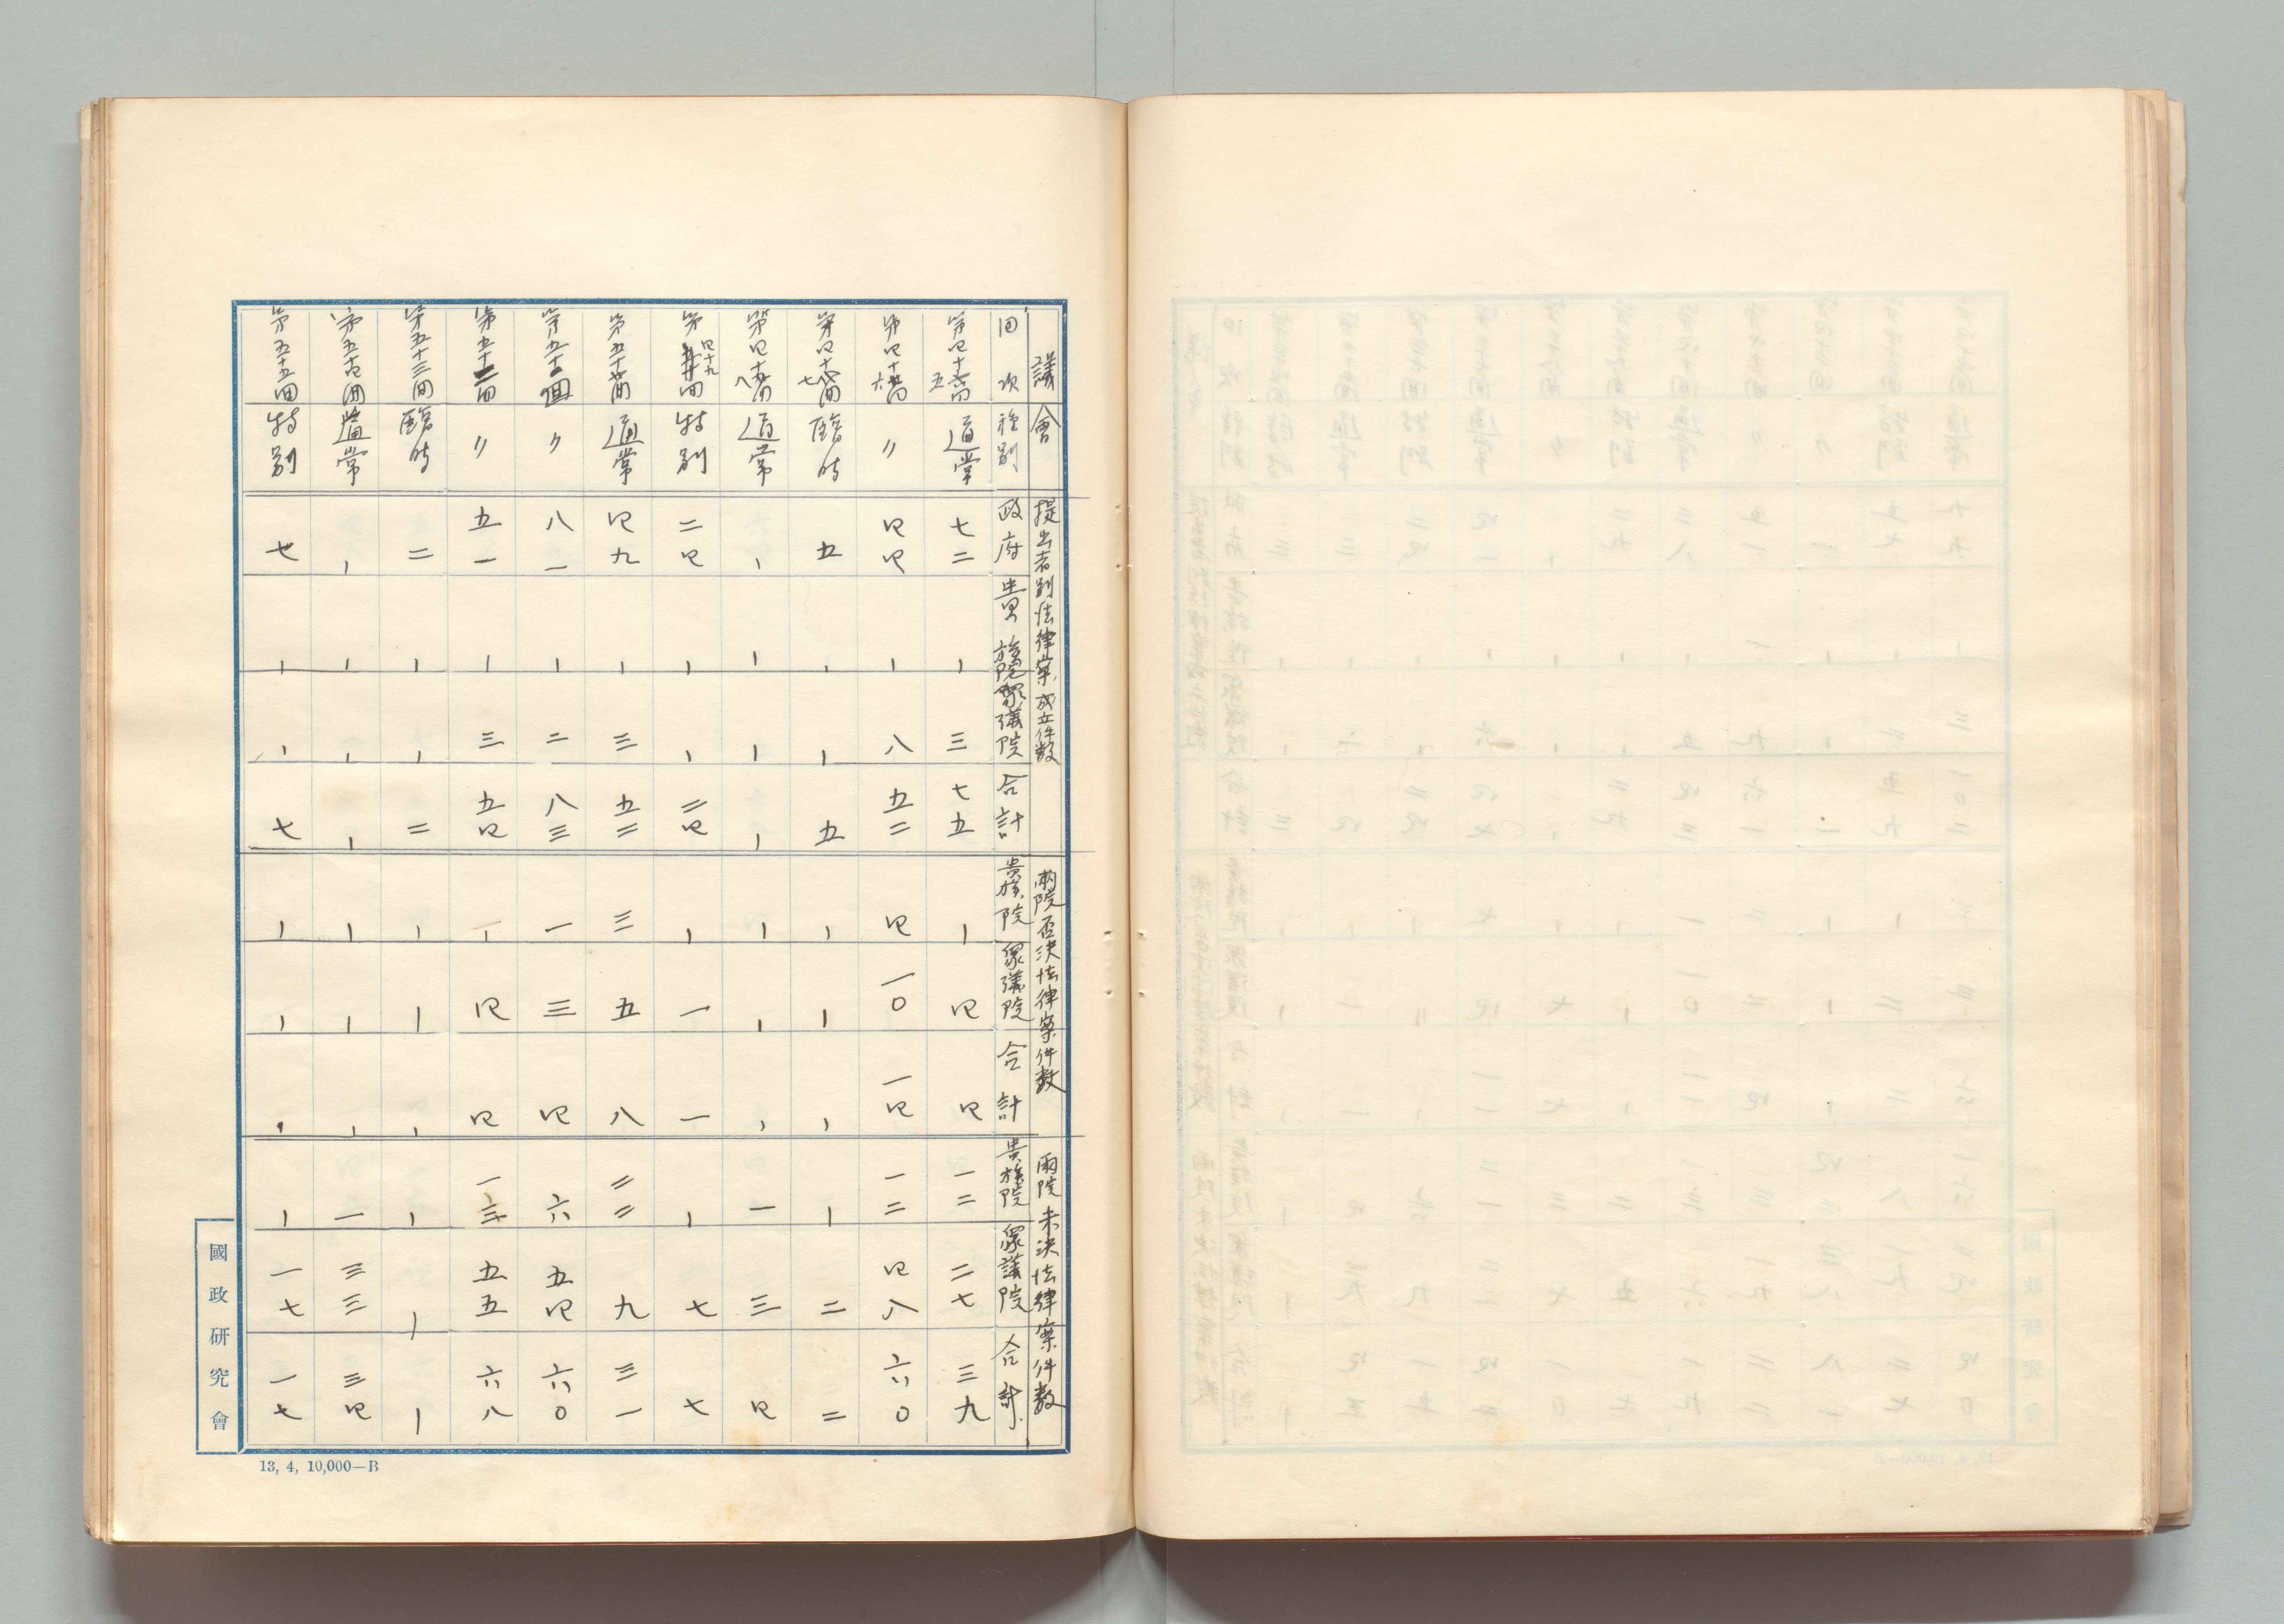 議會 提出者別法律案成立件数 兩院否決法律案件数 兩院未決法律案件数
回次 種別 政府 貴族院 衆議院 合計 貴族院 衆議院 合計 貴族院 衆議院 合計
第四十五回 通常 七二 ー 三 七五 ー 四 四 一二 二七 三九
第四十六回 〃 四四 ー 八 五二 四 一〇 一四 一二 四八 六〇
第四十七回 臨時 五 ー ー 五 ー ー ー ー 二 二
第四十八回 通常 ー ー ー ー ー ー ー 一 三 四
第四十九回 特別 二四 ー ー 二四 ー 一 一 ー 七 七
第五十回 通常 四九 ー 三 五二 三 五 八 二二 九 三一
第五十一回 〃 八一 ー 二 八三 一 三 四 六 五四 六〇
第五十二回 〃 五一 ー 三 五四 ー 四 四 一三 五五 六八
第五十三回 臨時 二 ー ー 二 ー ー ー ー ー ー
第五十四回 通常 ー ー ー ー ー ー ー 一 三三 三四
第五十五回 特別 七 ー ー 七 ー ー ー ー 一七 一七
國政研究會
13, 4, 10,000—B